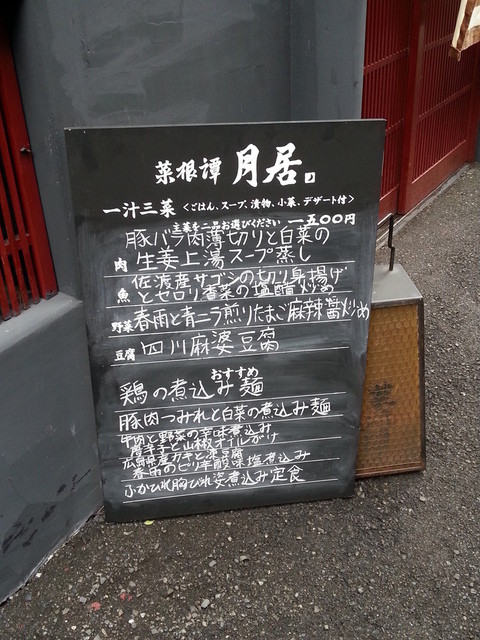 菜根譚 月居
一汁三菜 〈ごはん、スープ、漬物、小菜、デザート付〉
主菜を二品お選びください 一五〇〇円
豚バラ肉薄切りと白菜の
肉 生姜上湯スープ蒸し
佐渡産サゴシの切り身揚げ
魚 とセロリ 菜の塩 炒め
野菜 春雨と青ニラ煎りたまご麻辣醤炒め
豆腐 四川麻婆豆腐
おすすめ
鶏の煮込み麺
豚肉つみれと白菜の煮込み麺
牛肉と野菜の辛味煮込み
唐辛子と山椒オイルがけ
広島県産カキと凍豆腐
ピリ辛酸味塩煮込み
ふかひれ胸びれ姿煮込み定食